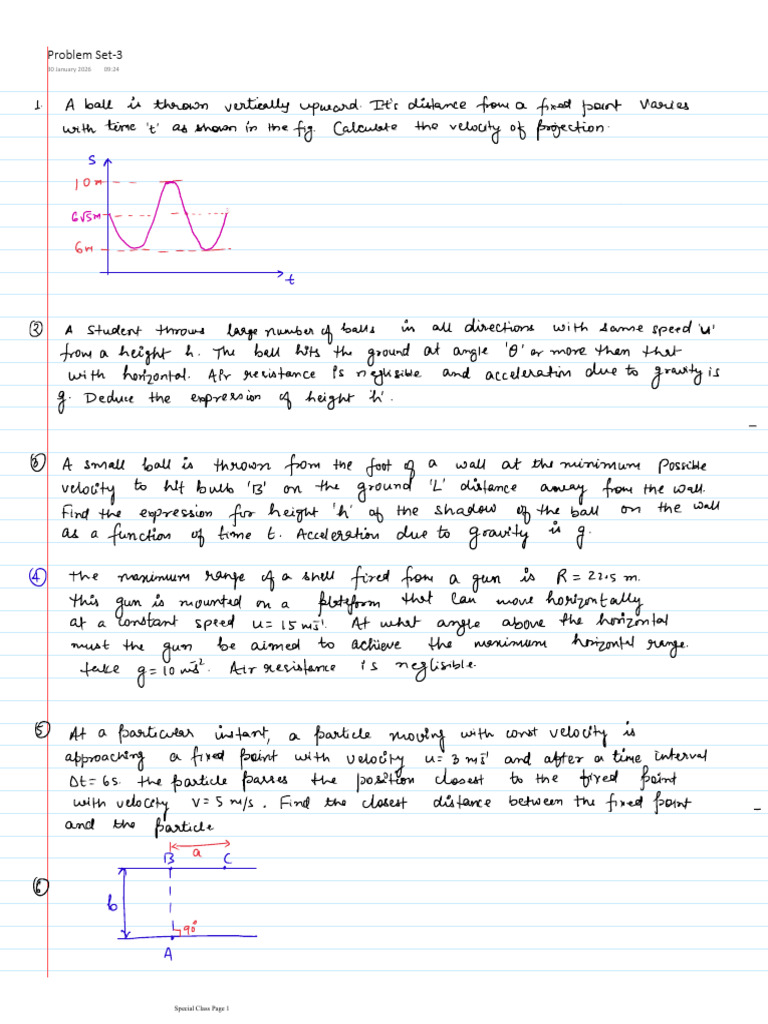 Problem Set-3
30 January 2026 09:24
1. A ball is thrown vertically upward. It's distance from a fixed point varies
with time 't' as shown in the fig. Calculate the velocity of projection.
S
10m
6√5m
6m
t
② A student throws large number of balls in all directions with same speed 'u'
from a height h. The ball hits the ground at angle 'θ' or more then that
with horizontal. Air resistance is neglisible and acceleration due to gravity is
g. Deduce the expression of height 'h'.
③ A small ball is thrown from the foot of a wall at the minimum possible
velocity to hit bulb 'B' on the ground 'L' distance away from the wall.
Find the expression for height 'h' of the shadow of the ball on the wall
as a function of time t. Acceleration due to gravity is g.
④ The maximum range of a shell fired from a gun is R = 22.5 m.
This gun is mounted on a plateform that can move horizontally
at a constant speed u = 15 ms⁻¹. At what angle above the horizontal
must the gun be aimed to achieve the maximum horizontal range.
take g = 10 ms⁻². Air resistance is neglisible.
⑤ At a particular instant, a particle moving with const velocity is
approaching a fixed point with velocity u = 3 ms⁻¹ and after a time interval
Δt = 6s. the particle passes the position closest to the fixed point
with velocity v = 5 m/s. Find the closest distance between the fixed point
and the particle
⑥
a
B C
b
90°
A
Special Class Page 1